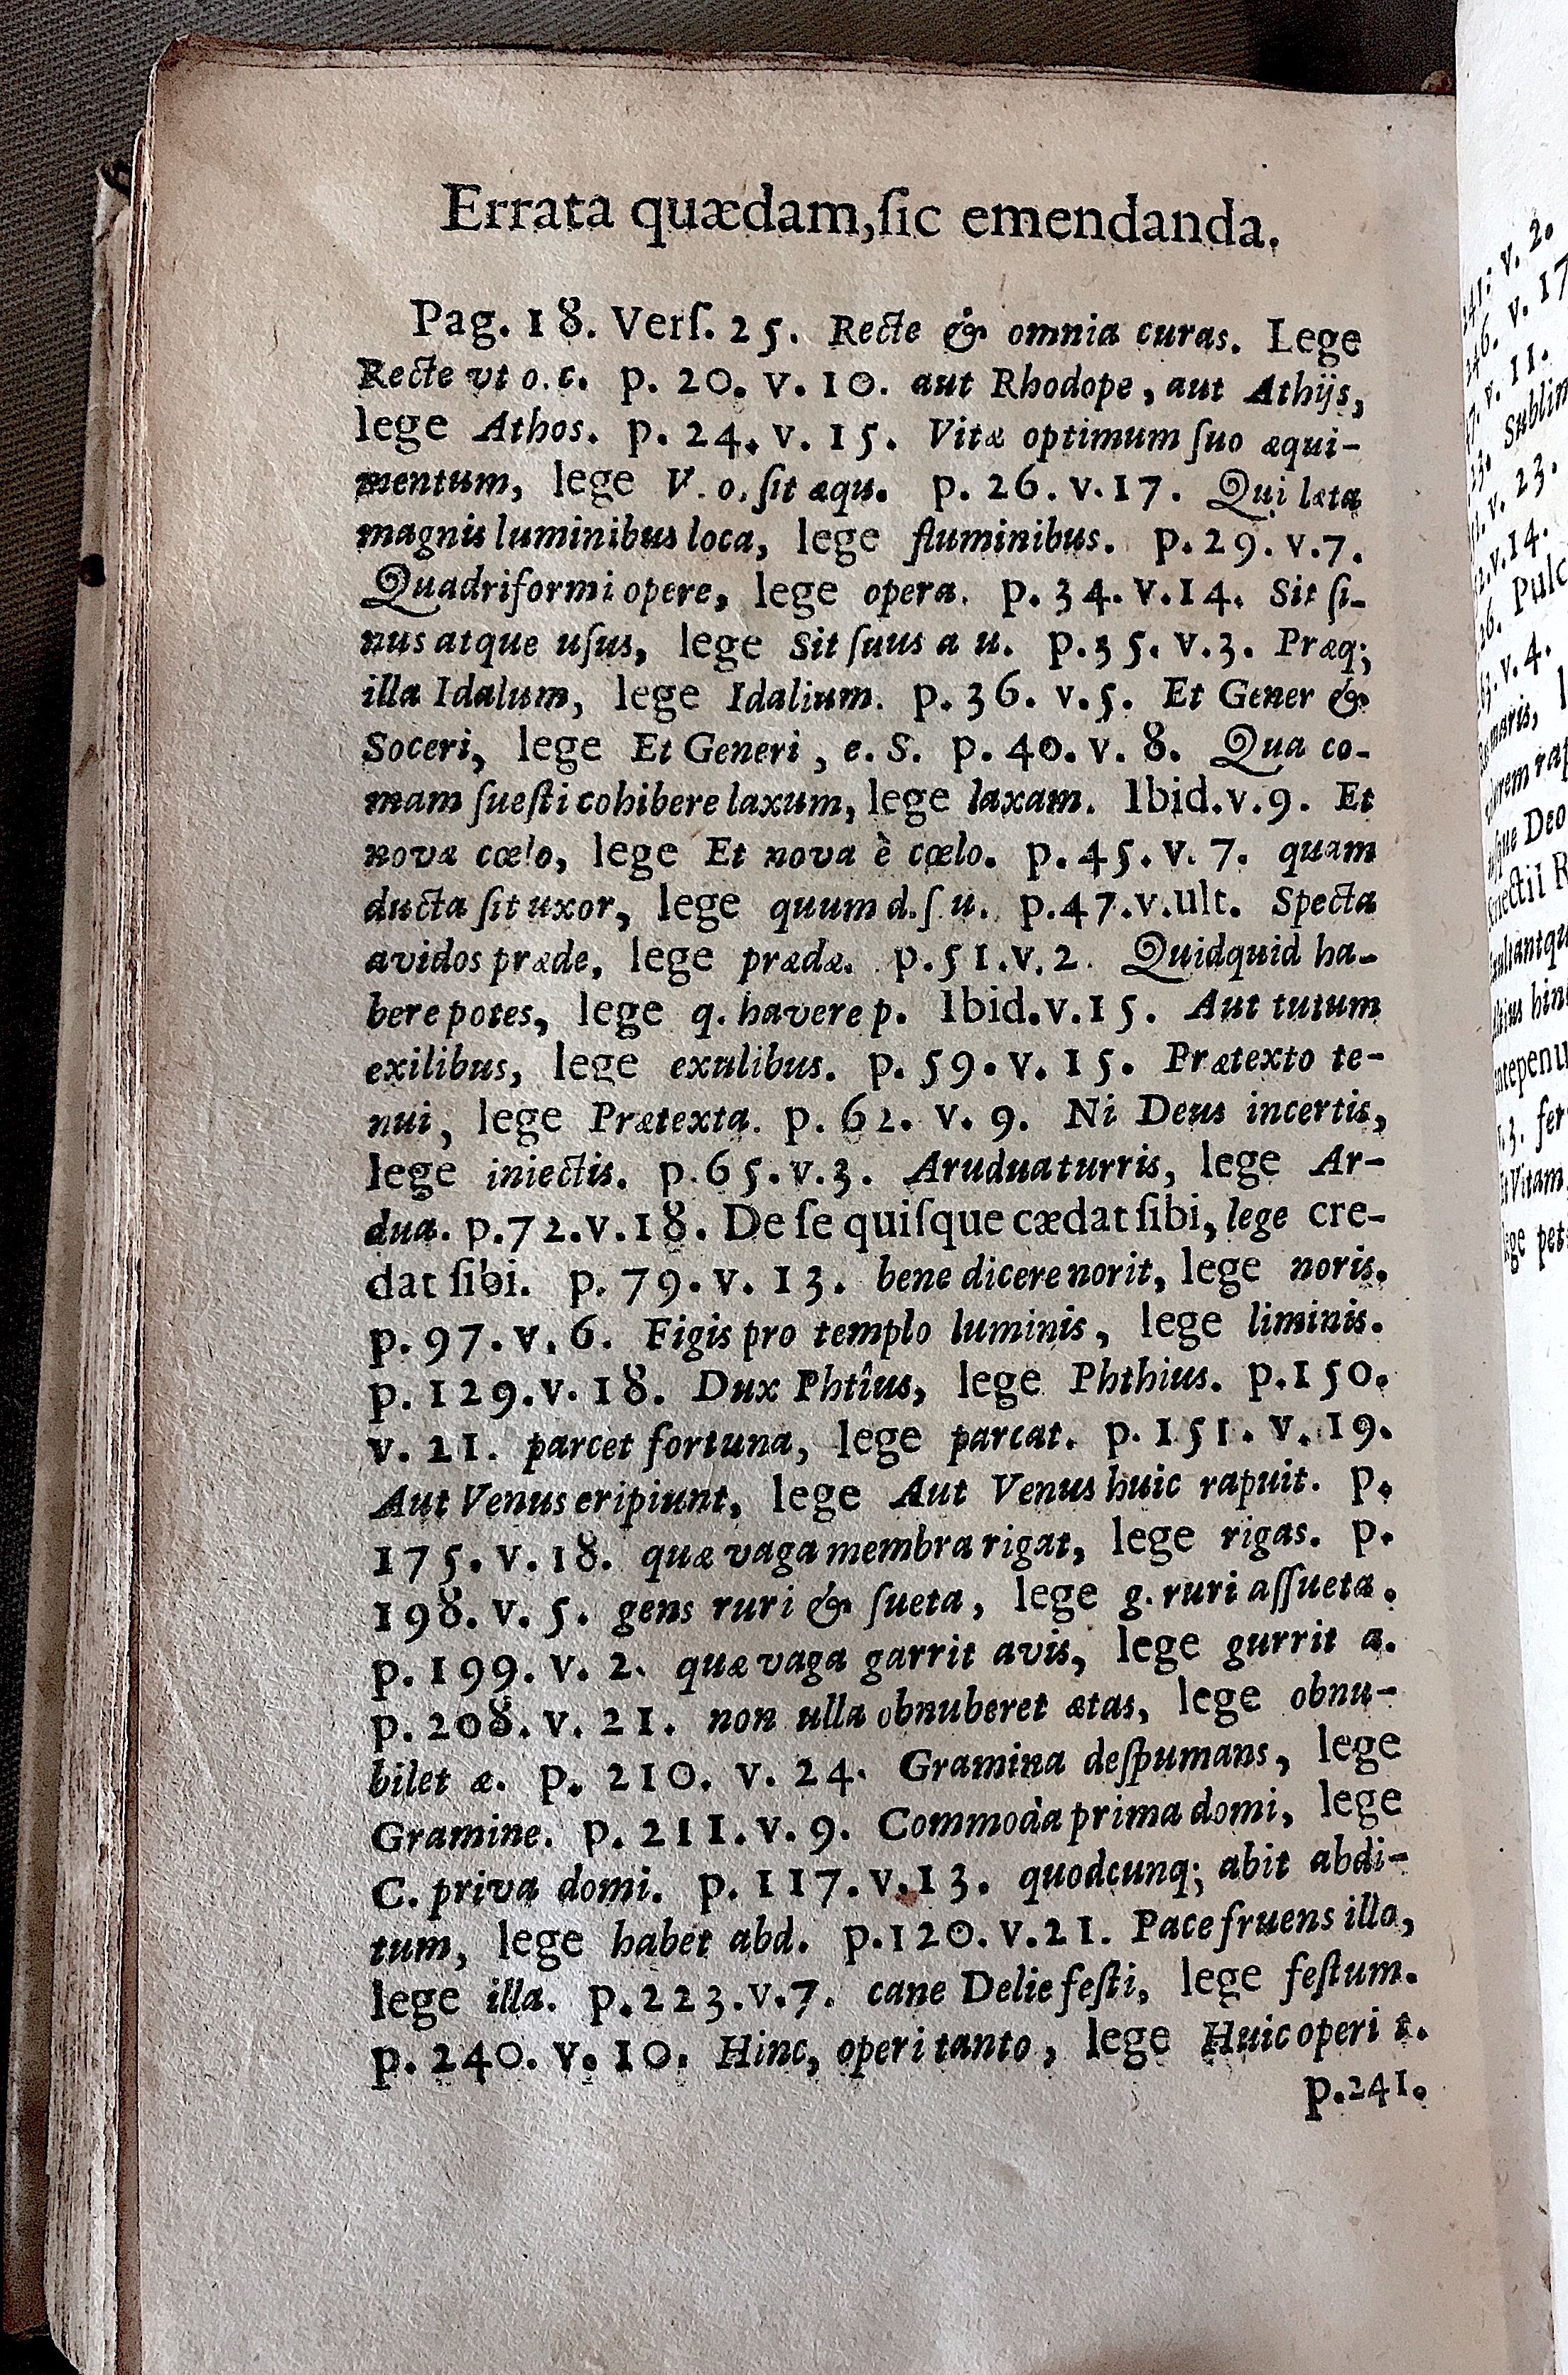 Errata quædam,ſic emendanda.
Pag. 18. Verſ. 25. Recte & omnia curas. Lege
Recte vt o. c. p. 20. v. 10. aut Rhodope, aut Athijs,
lege Athos. p. 24. v. 15. Vitæ optimum ſuo æqui-
mentum, lege V. o. ſit æqu. p. 26. v. 17. Qui læta
magnis luminibus loca, lege fluminibus. p. 29. v. 7.
Quadriformi opere, lege opera. p. 34. v. 14. Sit ſi-
nus atque uſus, lege Sit ſuus a u. p. 35. v. 3. Præq;
illa Idalum, lege Idalium. p. 36. v. 5. Et Gener &
Soceri, lege Et Generi, e. S. p. 40. v. 8. Qua co-
mam ſueſti cohibere laxum, lege laxam. Ibid. v. 9. Et
nova cœlo, lege Et nova è cœlo. p. 45. v. 7. quam
ducta ſit uxor, lege quum d. ſ u. p. 47. v. ult. Specta
avidos præde, lege prædæ. p. 51. v. 2. Quidquid ha-
bere potes, lege q. havere p. Ibid. v. 15. Aut tutum
exilibus, lege exulibus. p. 59. v. 15. Prætexto te-
nui, lege Prætexta. p. 62. v. 9. Ni Deus incertis,
lege iniectis. p. 65. v. 3. Aruduaturris, lege Ar-
dua. p. 72. v. 18. De ſe quiſque cædat ſibi, lege cre-
dat ſibi. p. 79. v. 13. bene dicere norit, lege noris.
p. 97. v. 6. Figis pro templo luminis, lege liminis.
p. 129. v. 18. Dux Phtîus, lege Phthius. p. 150.
v. 21. parcet fortuna, lege parcat. p. 151. v. 19.
Aut Venus eripiunt, lege Aut Venus huic rapuit. p.
175. v. 18. quæ vaga membra rigat, lege rigas. p.
198. v. 5. gens ruri & ſueta, lege g. ruri aſſueta.
p. 199. v. 2. quæ vaga garrit avis, lege gurrit a.
p. 208. v. 21. non ulla obnuberet ætas, lege obnu-
bilet æ. p. 210. v. 24. Gramina deſpumans, lege
Gramine. p. 211. v. 9. Commoda prima domi, lege
C. priva domi. p. 117. v. 13. quodcunq; abit abdi-
tum, lege habet abd. p. 120. v. 21. Pace fruens illo,
lege illa. p. 223. v. 7. cane Delie feſti, lege feſtum.
p. 240. v. 10. Hinc, operi tanto, lege Huic operi t.
p. 241.
241: v. 2.
246. v. 17
v. 11.
Sublim
v. 23.
v. 14.
Pulc
v. 4.
Deo
hinc
3. fer
Vitam